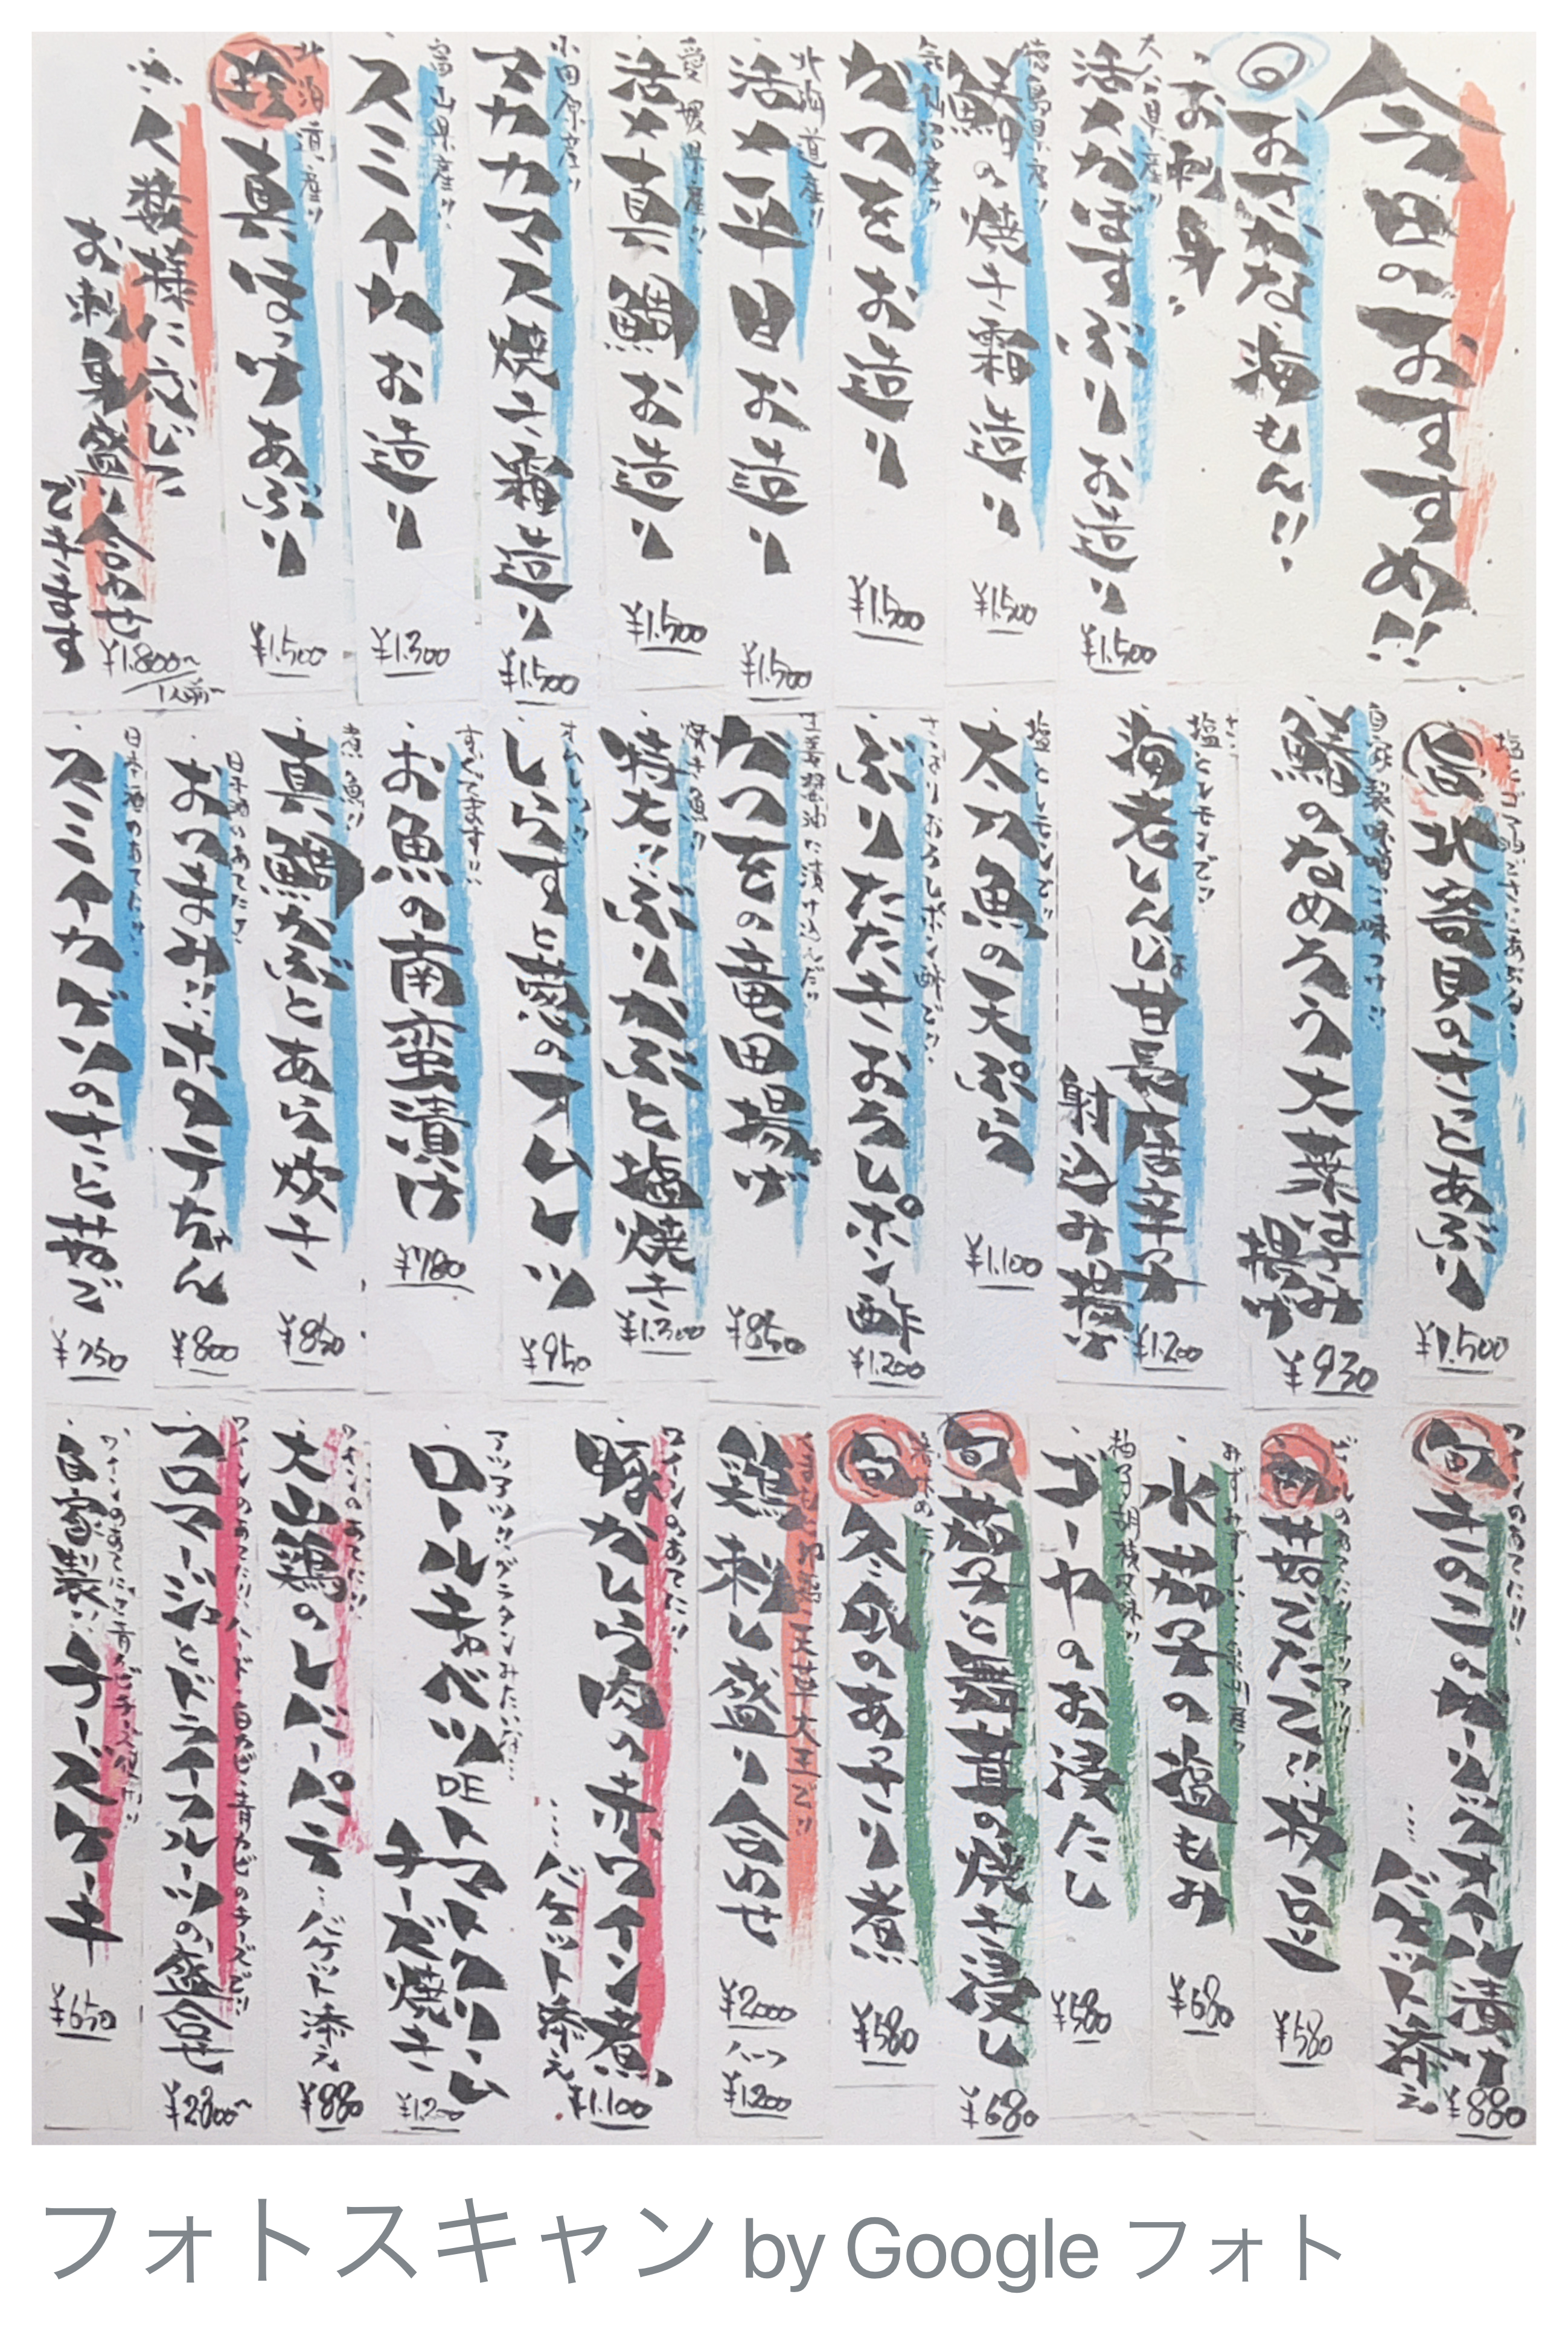 今日のおすすめ!!
おさかな海もん!!
お刺身
大分県産!!
活〆かぼすぶりお造り
¥1.500
徳島県産!!
太刀魚の焼き霜造り
¥1.500
気仙沼産!!
かつをお造り
¥1.500
北海道産!!
活〆平目お造り
¥1.500
愛媛県産!!
活〆真鯛お造り
¥1.500
小田原産!!
アカカマス焼き霜造り
¥1.500
富山県産!!
スミイカお造り
¥1.300
北海道産!!
真ほっけあぶり
¥1.500
※人数様に応じて
お刺身盛り合わせ
できます
¥1.800~
1人前~
塩とゴマ油でさっとあぶる!!
北寄貝のさっとあぶり
¥1.500
自家製味噌で味つけ!!
鯵のなめろう大葉はさみ
揚げ
¥930
塩とレモンで!!
海老しんじょ甘長唐辛子
射込み揚げ
¥1.200
塩とレモンで!!
太刀魚の天ぷら
¥1.100
さっぱりおろしポン酢で!!
ぶりたたきおろしポン酢
¥1.200
生姜醤油に漬け込んだ!!
かつをの竜田揚げ
¥850
焼き魚!!
特大!!ぶりかぶと塩焼き
¥1.300
オムレツ!!
しらすと葱のオムレツ
¥950
すぐでます!!
お魚の南蛮漬け
¥780
煮魚!!
真鯛かぶとあら炊き
¥850
日本酒のあてに!!
おつまみ!!ホタテちゃん
¥800
日本酒のあてに!!
スミイカゲソのさっと茹で
¥750
ワインのあてに!!
旬 きのこのガーリックオイル漬け
…バケット添え
¥880
旬 茹でたて!!枝豆
¥580
水茄子の塩もみ
¥680
柚子胡椒風味!!
ゴーヤのお浸たし
¥580
旬 茄子と舞茸の焼き浸し
¥680
旬 冬瓜のあっさり煮
¥580
鶏刺し盛り合わせ
¥2.000
ハーフ
¥1.200
ワインのあてに!!
豚かしら肉の赤ワイン煮
…バケット添え
¥1.100
アツアツ!!グラタンみたいな…
ロールキャベツDEトマトクリーム
チーズ焼き
¥1.200
ワインのあてに!!
大山鶏のレバーパテ…バケット添え
¥880
ワインのあてに!!ハード・白カビ・青カビのチーズで!!
フロマージュとドライフルーツの盛合せ
¥2800~
ワインのあてに!!青カビチーズ使用!!
自家製!!チーズケーキ
¥650
フォトスキャン by Google フォト